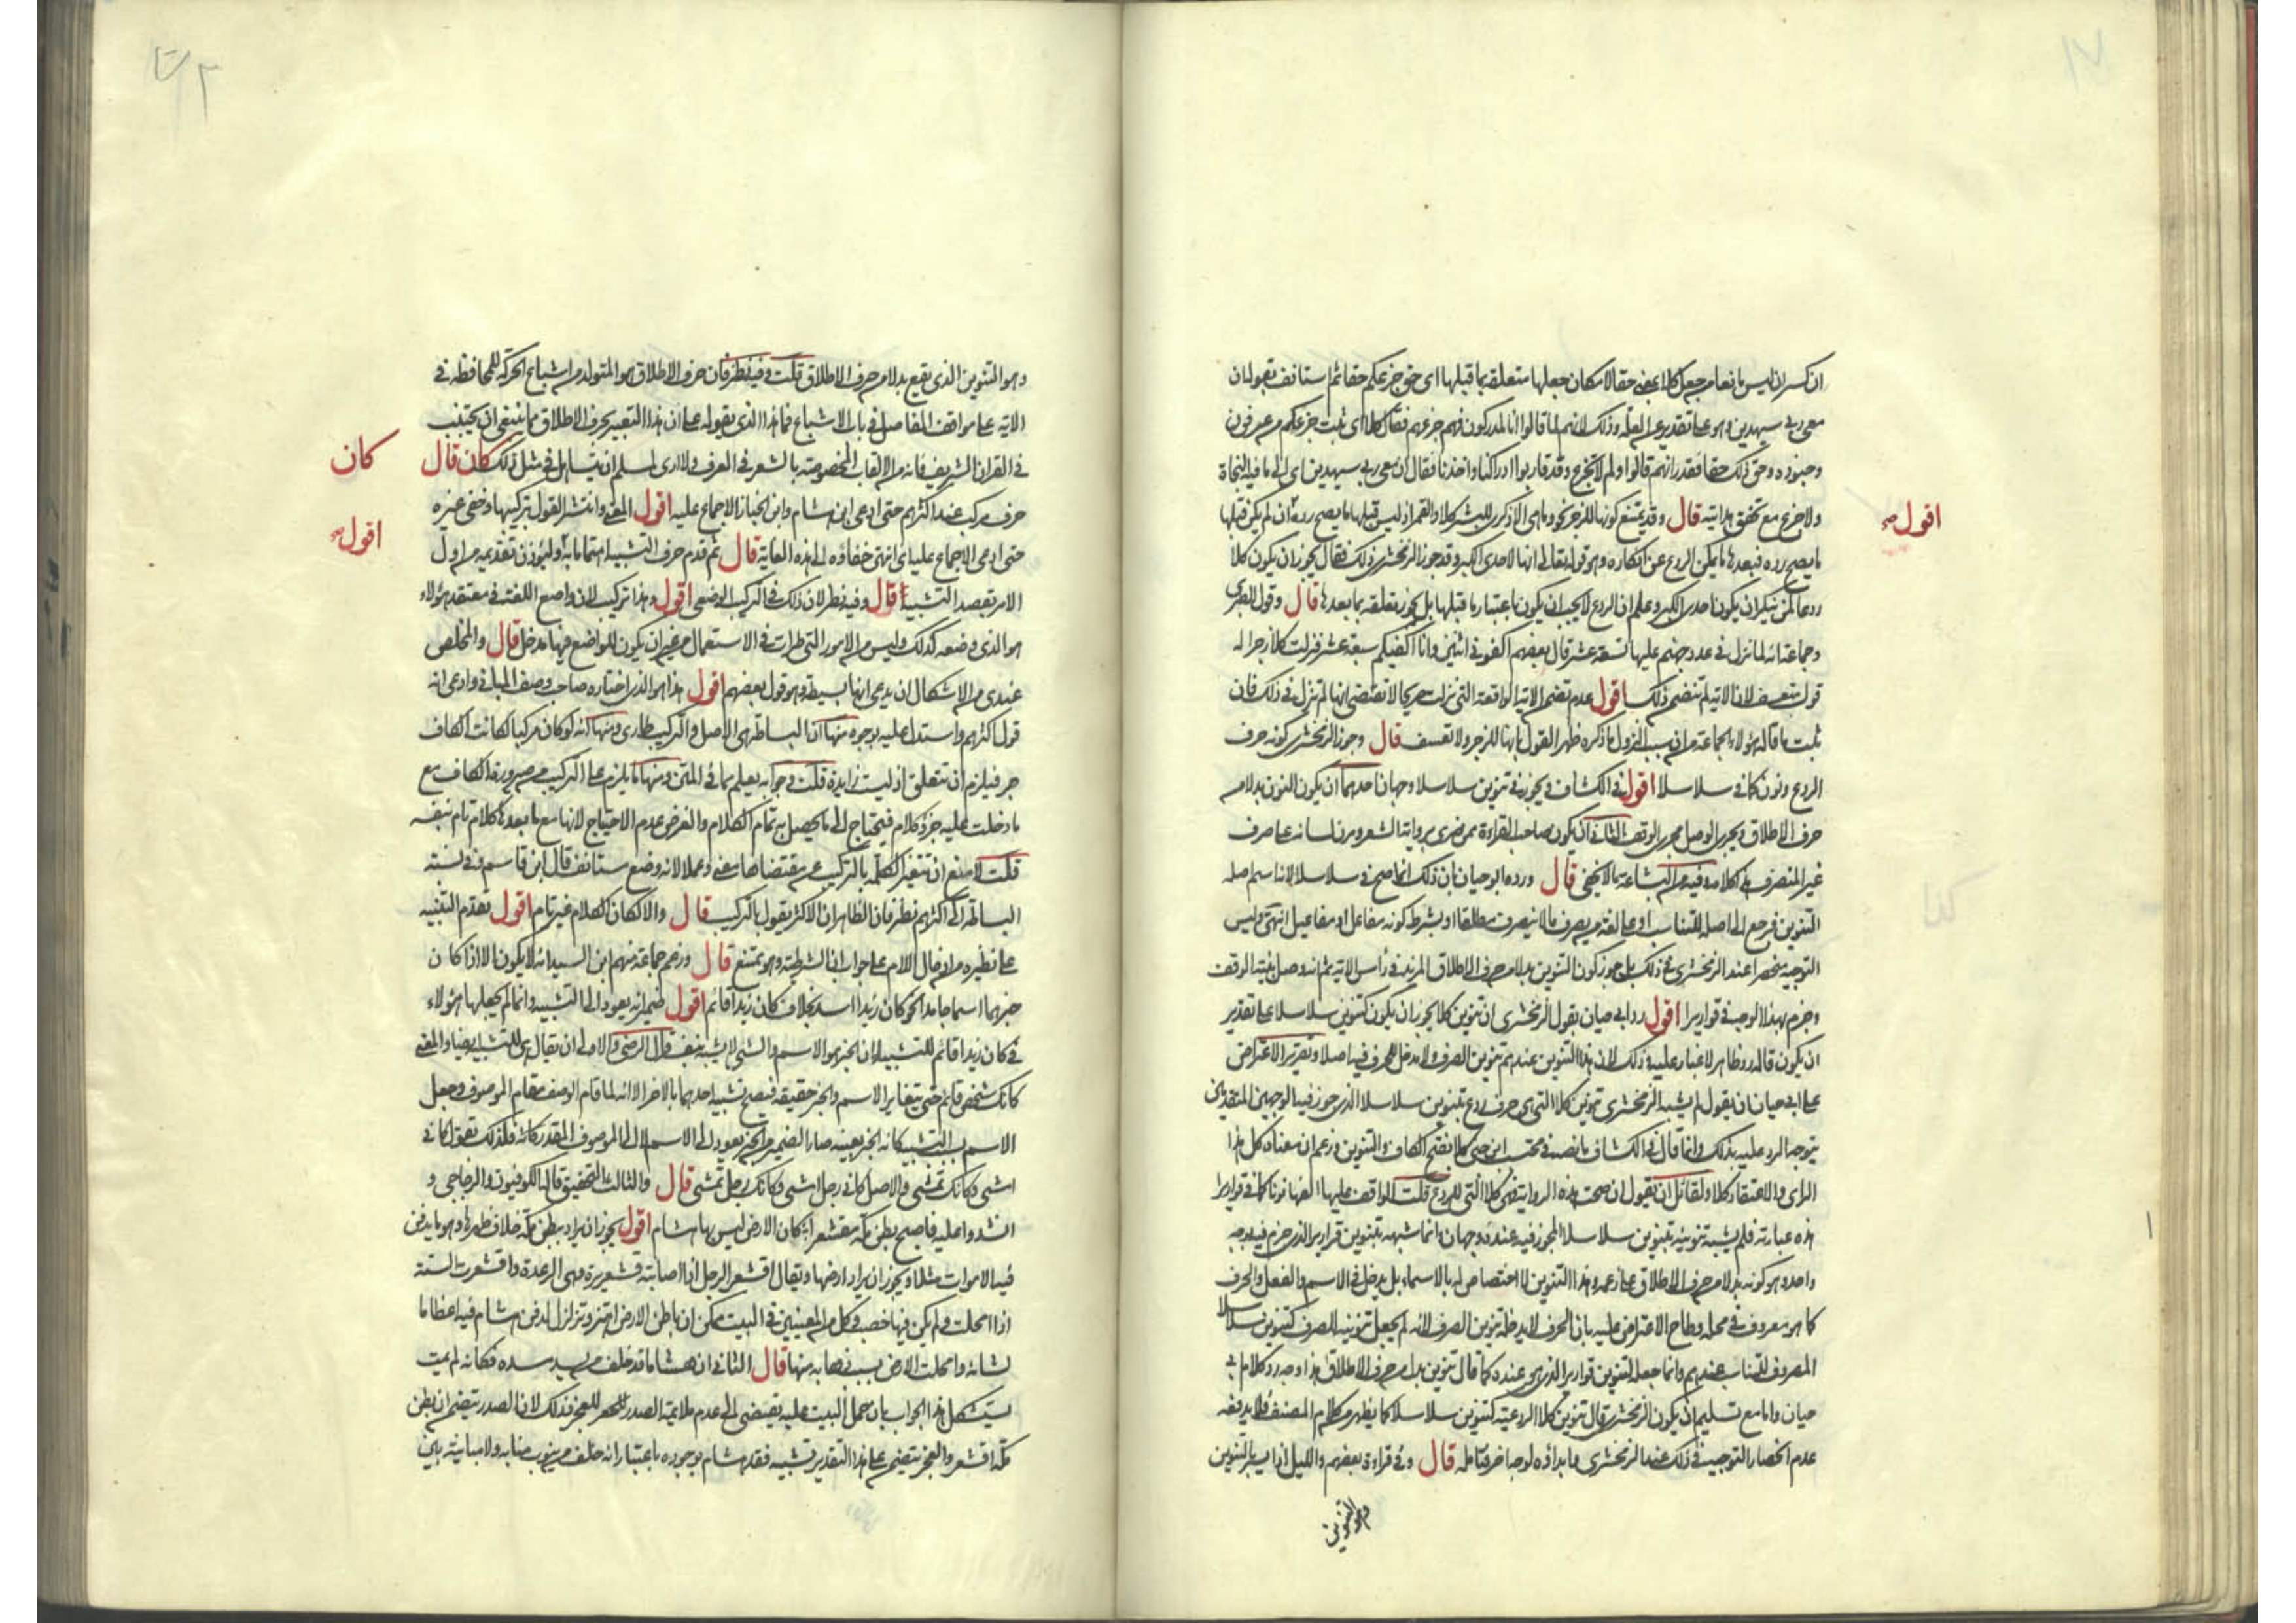 ان كسر ان ليس مانعا من جعل كلا بمعنى حقا لامكان جعلها متعلقة بما قبلها اى حق جزعكم حقا ثم استانف بقوله ان
معى ربى سيهدين وهو على تقدير العلة وذلك لانهم لما قالوا انا لمدركون فهم جزعهم فقال كلا اى ثبت جزعكم من فرعون
وجنوده وحق ذلك حقا فقدر انهم قالوا ولم لا تجزع وقد قاربوا ادراكنا واخذنا فقال ان معى ربى سيهدين اى الى ما فيه النجاة
ولا جزع مع تحقق هدايته قال وقد يمتنع كونها للزجر نحو وما هى الا ذكرى للبشر كلا والقمر اذ ليس قبلها ما يصح رده ان لم يكن قبلها
اقول
ما يصح رده فبعدها ما يمكن الردع عن انكاره وهو قوله تعالى انها لاحدى الكبر وقد جوز الزمخشرى ذلك فقال يجوز ان يكون كلا
ردعا لمن ينكر ان يكون احدى الكبر وعلم ان الردع لا يجب ان يكون باعتبار ما قبلها بل يجوز تعلقه بما بعدها قال وقول الطبرى
وجماعة انه لما نزل فى عدد جهنم عليها تسعة عشر قال بعضهم اكفونى اثنين وانا اكفيكم سبعة عشر فنزلت كلا زجرا له
قول متعسف لان الاية لم تتضمن ذلك اقول عدم تضمن الاية الواقعة التى نزلت صريحا لا تقتضى انها لم تنزل فى ذلك فان
ثبت ما قاله هؤلاء الجماعة من ان سبب النزول ما ذكره ظهر القول بانها للزجر ولا تعسف قال وجوز الزمخشرى كونه حرف
الردع ونون كما فى سلاسلا اقول فى الكشاف ويجوز فى تنوين سلاسلا وجهان احدهما ان يكون النون بدلا من
حرف الاطلاق ويجرى الوصل مجرى الوقف الثانى ان يكون صاحب القراءة ممن ضرى برواية الشعر ومرن لسانه على صرف
غير المنصرف فى كلامه وفيه من البشاعة ما لا يخفى قال ورده ابو حيان بان ذلك انما صح فى سلاسلا لانه اسم اصله
التنوين فرجع الى اصله للتناسب او على لغة من يصرف ما لا ينصرف مطلقا او بشرط كونه مفاعل او مفاعيل انتهى وليس
التوجيه منحصرا عند الزمخشرى فى ذلك بل جوز كون التنوين بدلا من حرف الاطلاق المزيد فى رأس الاية ثم انه وصل بنية الوقف
وجزم بهذا الوجه فى قواريرا اقول رد ابى حيان بقول الزمخشرى ان تنوين كلا يجوز ان يكون كتنوين سلاسلا على تقدير
ان يكون قاله رد ظاهر لا غبار عليه وذلك لان هذا التنوين عندهم تنوين الصرف ولا مدخل للحرف فيه اصلا وتقرير الاعتراض
على ابى حيان ان يقول لم يشبه الزمخشرى تنوين كلا التى هى حرف ردع بتنوين سلاسلا الذى جوز فيه الوجهين المتقدمين حتى
يتوجه الرد عليه بذلك وانما قال فى الكشاف ما نصه فى محتسب ابن جنى كلا بفتح الكاف والتنوين وزعم ان معناه كل هذا
الراى والاعتقاد كلا ولقائل ان يقول ان صحت هذه الرواية فهى كلا التى للردع قلب الواقف عليها الفها نونا كما فى قواريرا
هذه عبارته فلم يشبه تنوينه بتنوين سلاسلا المجوز فيه عنده وجهان وانما شبهه بتنوين قواريرا الذى جزم فيه بوجه
واحد وهو كونه بدلا من حرف الاطلاق على زعمه وهذا التنوين لا اختصاص له بالاسماء بل يدخل فى الاسم والفعل والحرف
كما هو معروف فى محله وطاح الاعتراض عليه بان الحرف لا يدخله تنوين الصرف لانه لم يجعل تنوينه الصرف كتنوين سلاسلا
المصروف للتناسب عندهم وانما جعله لتنوين قواريرا الذى هو عنده كما قال تنوين بدل من حرف الاطلاق هذا وجه رد كلام ابى
حيان واما مع تسليم ان يكون الزمخشرى قال تنوين كلا الردعية كتنوين سلاسلا كما يظهر من كلام المصنف فلا يدفعه
عدم انحصار التوجيه فى ذلك عند الزمخشرى وابداؤه لوجه اخر فتأمله قال وفى قراءة بعضهم والليل اذا يسر بالتنوين
وهو التنوين
وهو التنوين الذى يقع بدلا من حرف الاطلاق قلت وفيه نظر فان حرف الاطلاق هو المتولد من اشباع الحركة للمحافظة فى
الاية على مواقف المفاصل فى باب الاشباع فما هذا الذى يقوله على ان هذا التعبير بحرف الاطلاق مما ينبغى ان يجتنب
فى القران الشريف فانه من الالقاب المخصوصة بالشعر فى العرف ولا ارى لمسلم ان يتساهل فى مثل ذلك كان قال
كان
حرف مركب عند اكثرهم حتى ادعى ابن هشام وابن الخباز الاجماع عليه اقول المعنى وانتشر القول بتركيبها وخفى غيره
اقول
حتى ادعى الاجماع عليه اى انتهى خفاؤه الى هذه الغاية قال ثم قدم حرف التشبيه اهتماما به وليؤذن تقديمه من اول
الامر بقصد التشبيه اقول وفيه نظر لان ذلك فى التركيب الوضعى اقول وهذا تركيب لان واضع اللغة فى معتقد هؤلاء
هو الذى وضعه كذلك وليس من الامور التى طرات فى الاستعمال من غير ان يكون للواضع فيها مدخل قال والمخلص
عندى من الاشكال ان يدعى انها بسيطة وهو قول بعضهم اقول هذا هو الذى اختاره صاحب وصف المبانى وادعى انه
قول اكثرهم واستدل عليه بوجوه منها ان البساطة هى الاصل والتركيب طارئ ومنها انه لو كان مركبا لكانت الكاف
جر فيلزم ان تتعلق اذ ليست زايدة قلت وجوابه يعلم مما فى المتن ومنها ما يلزم على التركيب من صيرورة الكاف مع
ما دخلت عليه جزء كلام فيحتاج الى ما يحصل به تمام الكلام والغرض عدم الاحتياج لانها مع ما بعدها كلام تام بنفسه
قلت لا مانع ان تتغير الكلمة بالتركيب عن مقتضاها معنى وعملا لانه وضع مستانف قال ابن قاسم وفى نسبته
البساطة الى اكثرهم نظر فان الظاهر ان الاكثر يقول بالتركيب قال والا لكان الكلام غير تام اقول تقدم التنبيه
على نظيره من ادخال اللام على جواب ان الشرطية وهو ممتنع قال وزعم جماعة منهم ابن السيد انه لا يكون الا اذا كان
خبرهما اسما جامدا نحو كان زيدا اسد بخلاف كان زيدا قائم اقول ضمير انه يعود الى التشبيه وانما لم يجعلها هؤلاء
فى كان زيدا قائم للتشبيه لان الخبر هو الاسم والشئ لا يشبه بنفسه قال الرضى والاولى ان يقال هى للتشبيه ايضا والمعنى
كانك شخص قائم حتى يتغاير الاسم والخبر حقيقة فيصح تشبيه احدهما بالاخر الا انه لما قام الوصف مقام الموصوف وجعل
الاسم بسبب التشبيه كانه الخبر بعينه صار الضمير من الخبر يعود الى الاسم لا الى الموصوف المقدر كانه فلذلك تقول كانى
امشى وكانك تمشى والاصل كانى رجل امشى وكانك رجل تمشى قال والثالث التحقيق قاله الكوفيون والزجاجى و
انشدوا عليه فاصبح بطن مكة مقشعرا كان الارض ليس بها هشام اقول يجوز ان يراد ببطن مكة خلاف ظهرها وهو ما يدفن
فيه الاموات مثلا ويجوز ان يراد ارضها ويقال اقشعر الرجل اذا اصابته قشعريرة وهى الرعدة واقشعرت السنة
اذا امحلت ولم يكن فيها خصب وكل من المعنيين فى البيت ممكن ان باطن الارض اهتز وتزلزل لدفن هشام فيه اعظاما
لشانه وامحلت الارض بسبب ذهابه منها قال الثانى ان هشاما قد خلف من يسد مسده فكانه لم يمت
يستشكل هذا الجواب بان حمل البيت عليه يقتضى الى عدم ملايمة الصدر للعجز وذلك لان الصدر يتضمن ان بطن
مكة اقشعر والعجز يتضمن على هذا التقدير تشبيه فقد هشام بوجوده باعتبار انه خلف من ينوب منابه ولا مباينة بين